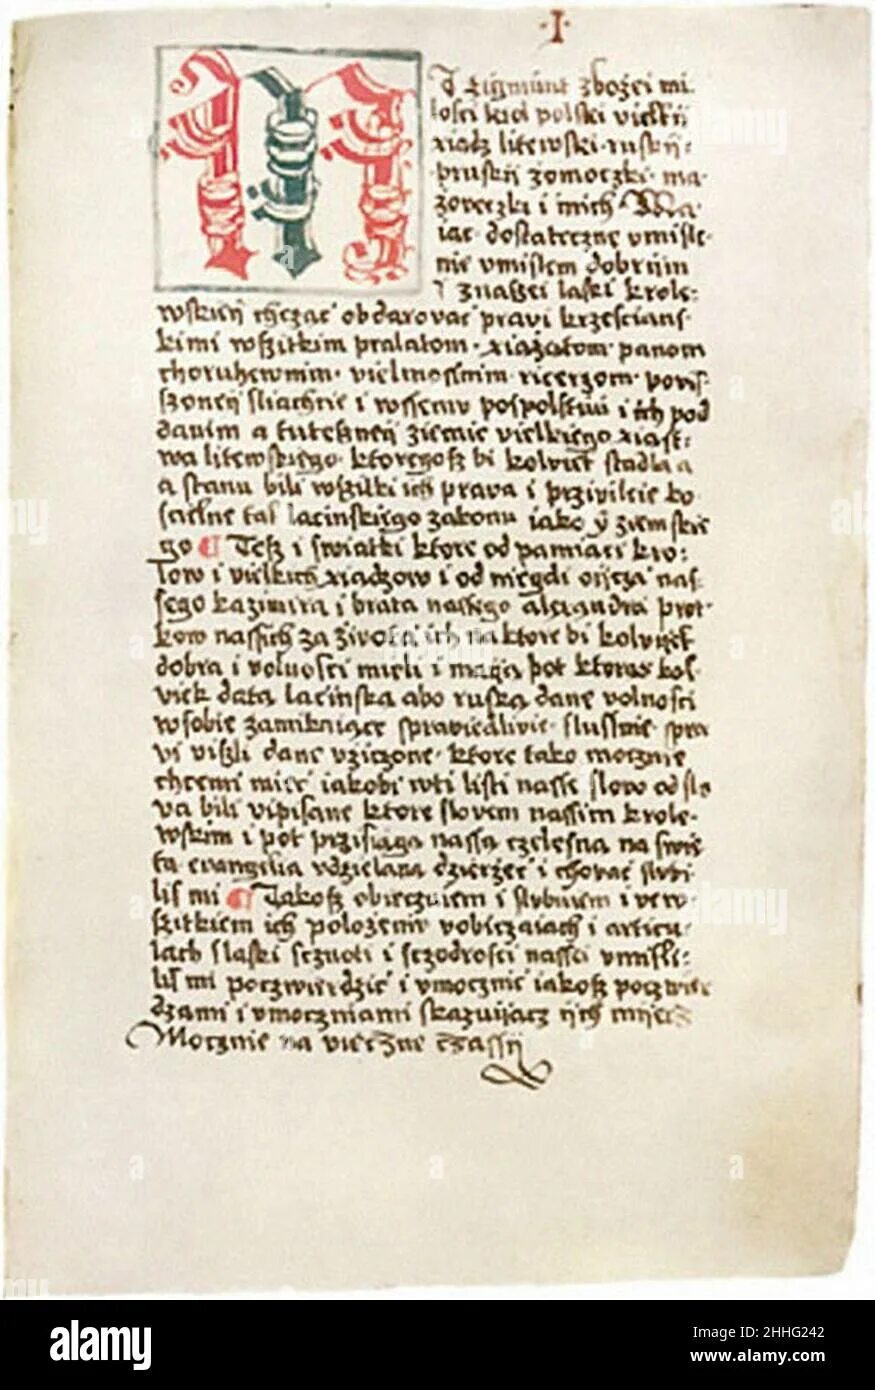 ·I·
M
Y Zigmunt zbożei mi
łości krol polski vielkij
xiądz litewski · ruskij ·
pruskij żomoczki · ma
zoveczki i inich Ma
iąc dostateczne vmisle
nie vmislem dobrijm
y znaszei laski krole:
wskieij chcząc obdarovać pravi krześcians
kimi wszitkim pralatom · xiażętom panom
choruhewnim · vielmosnim · ricerzom · povis
szoneij sliachcie i wssemv pospolstwu i ich pod
danim a tutesznej ziemie vielkiego xiast:
wa litewskiego · ktoregosz bi kolviek stadla
a stanu bili wszitki ich prava i przivileie ko
scielne tak lacinskiego zakonu iako y ziemskie
go Tesz i swiatki ktore od pamiaci kro:
low i vielkich xiądzow i od niegdi oijcza nas
sego kazimira i brata nassego alexandra prot
kow nassich za żivota ich na ktore bi kolviek
dobra i volnosci mieli i maią pot ktorąs kol
viek datą lacinską abo ruską dane volnosci
wsobie zamikaiące spraviedlivie · slussnie · pra
vi viszli dane vżiczone · ktore tako mocznie
chcemi mieć iakobi wti listi nasse slowo od slo
va bili vipisane ktore slovem nassim krole·
wskim i pot przisięgą nassą czelesną na swie
ta evangilia vdzielaną dzierżeć i chovać slubi
lis mi Takosz obiecziuiem i slubuiem i ve w·
szitkiem ich położenie vobiczaiach i articu·
lach s laski scznoti i sczodrosci nassei vmisli:
lis mi poczwierdzić i vmocznić iakosz poczwier
dzami i vmoczniami skazuijącz ijch mijecz
Mocznie na vieczne czassij
alamy
Image ID: 2HHG242
www.alamy.com